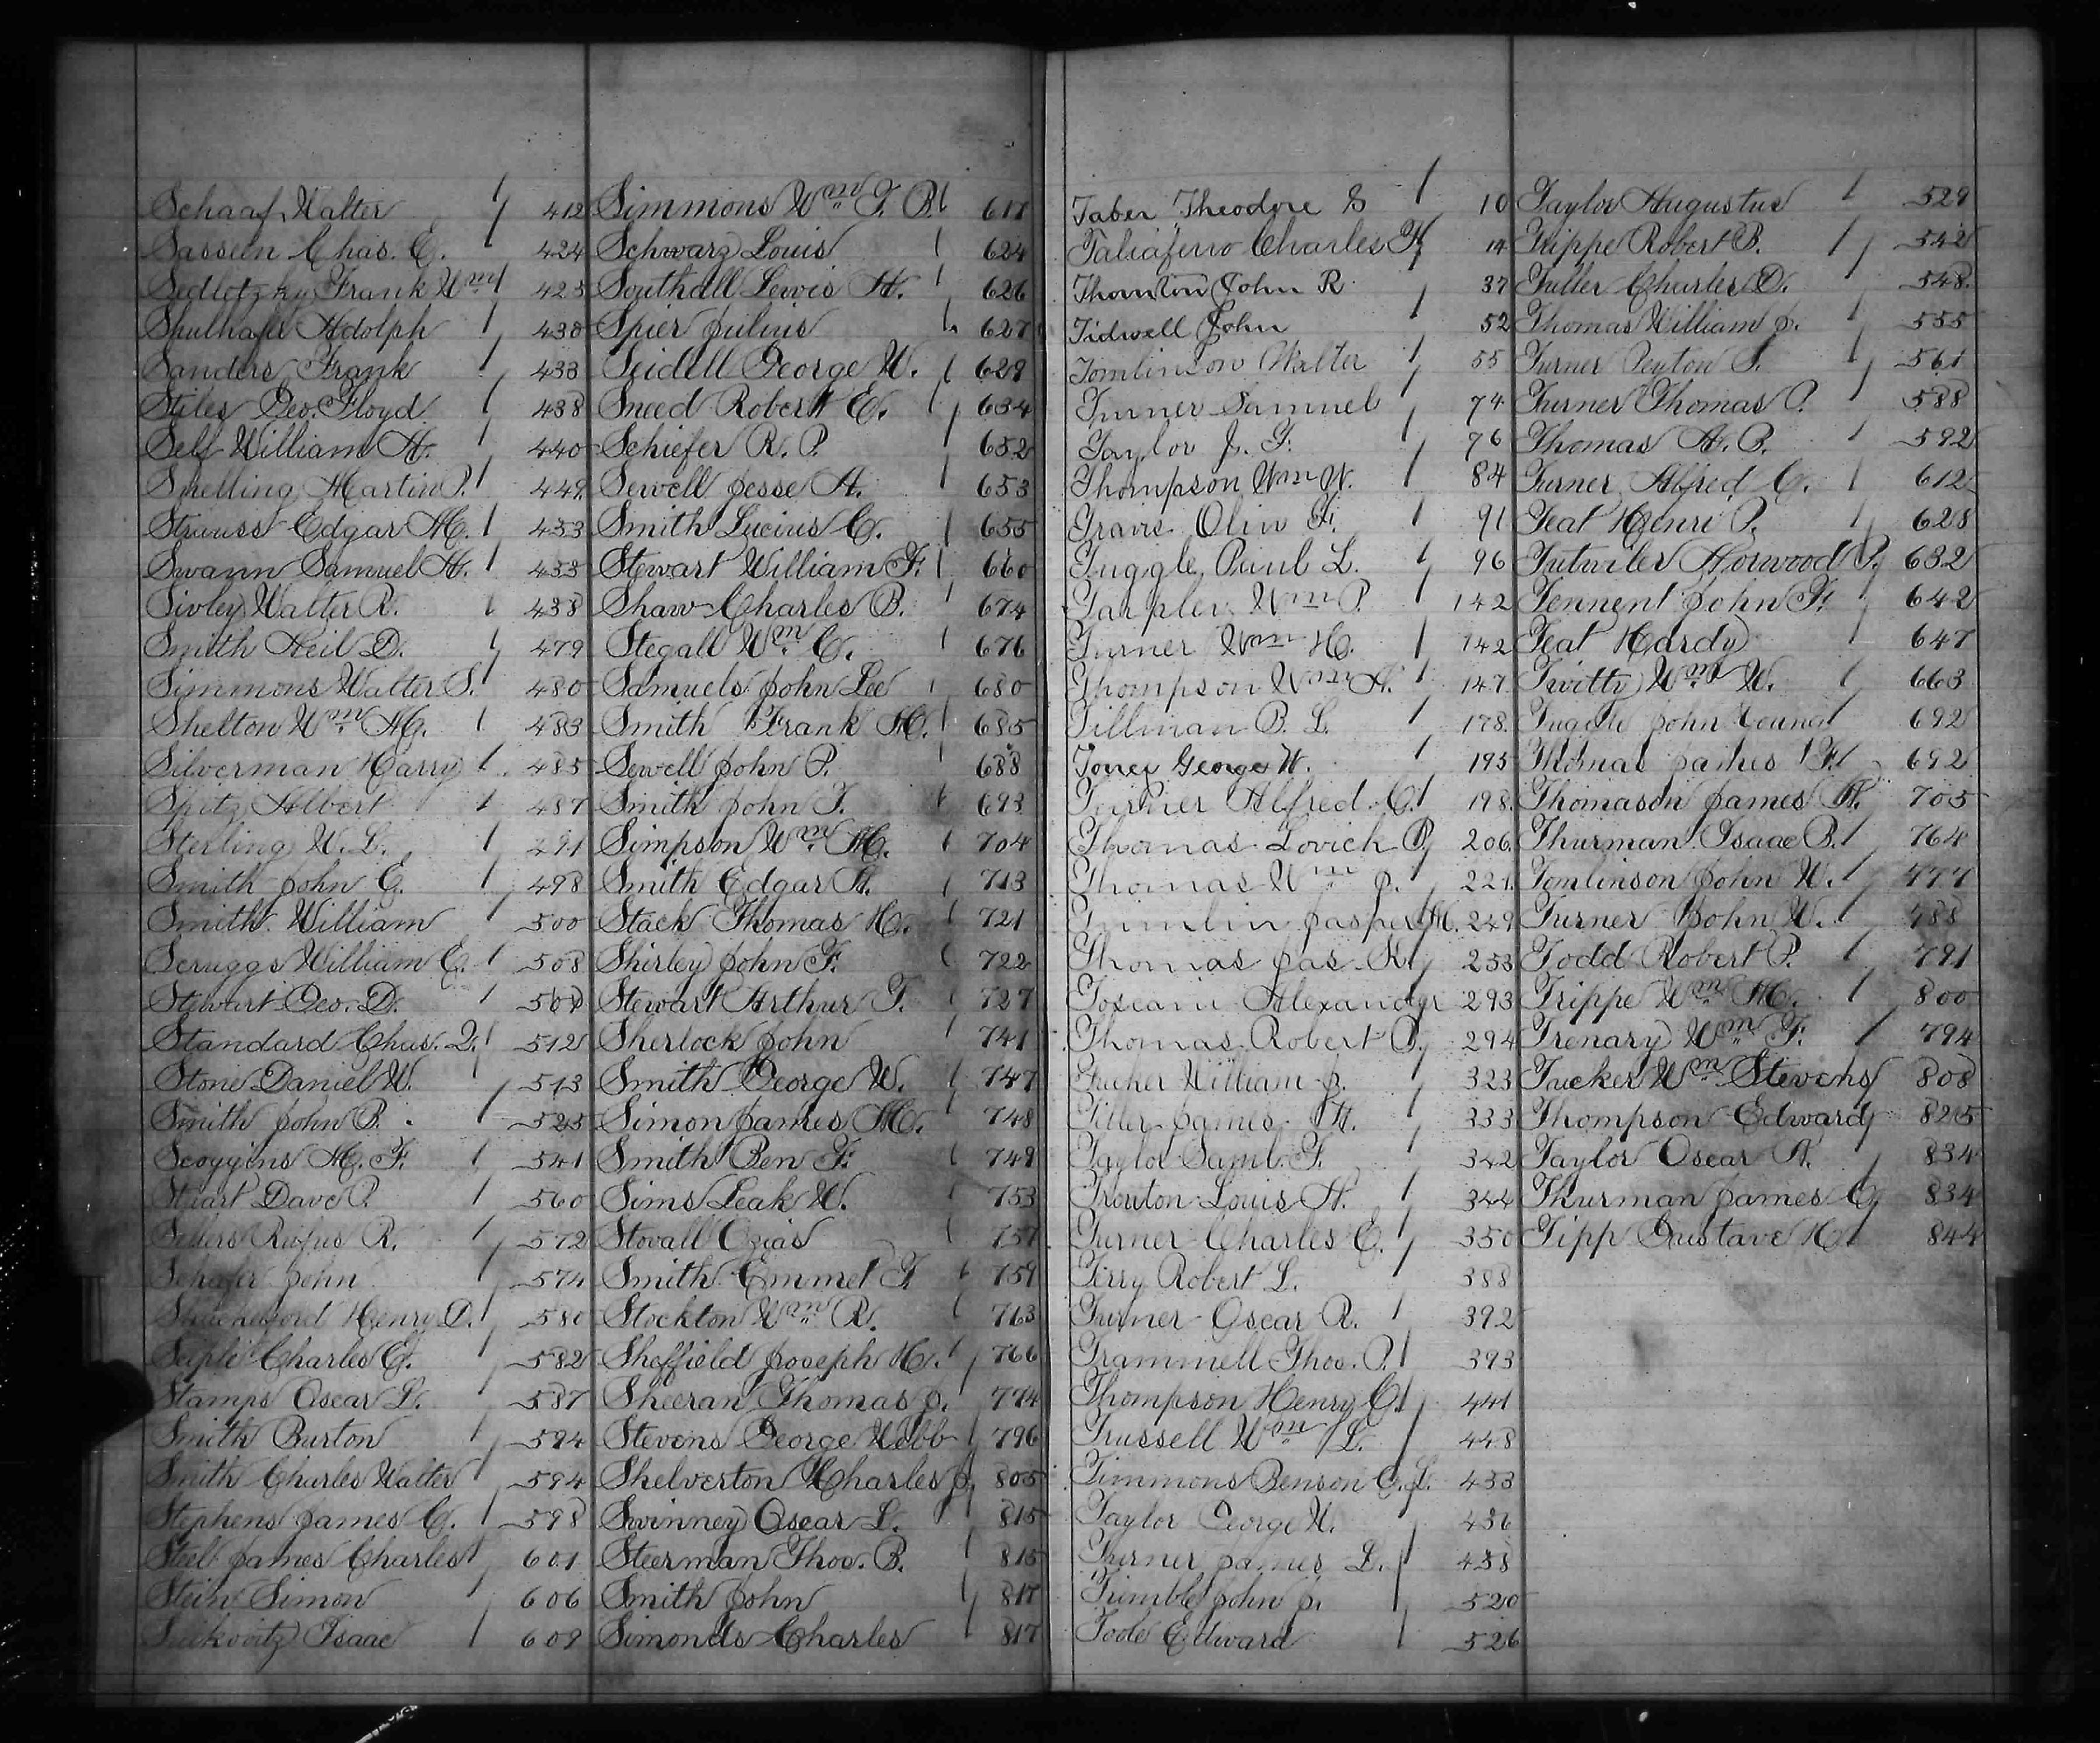 Schaaf Walter 412
Sasseen Chas. E. 424
Sedlotzky Frank Wm 425
Shulhafer Adolph 430
Sanders Frank 433
Stiles Geo. Floyd 438
Self William H. 440
Snelling Martin P. 449
Strauss Edgar M. 453
Swann Samuel H. 453
Sivley Walter R. 458
Smith Neil D. 479
Simmons Walter S. 480
Shelton Wm M. 483
Silverman Harry 485
Spitz Albert 487
Sterling W. L. 291
Smith John E. 498
Smith William 500
Scruggs William E. 508
Stewart Geo. D. 507
Standard Chas. Q. 512
Stone Daniel W. 513
Smith John B. 525
Scoggins M. F. 541
Stuart Dave P. 560
Sellers Rufus R. 572
Schafer John 574
Shackelford Henry D. 580
Seiple Charles E. 582
Stamps Oscar L. 587
Smith Burton 594
Smith Charles Walter 594
Stephens James C. 598
Steel James Charles 601
Stein Simon 606
Isaac 609
Simmons Wm T. B. 617
Schwarz Louis 624
Southall Lewis H. 626
Spier Julius 627
Seidell George W. 629
Sneed Robert E. 634
Schiefer R. P. 652
Sewell Jesse A. 653
Smith Lucius C. 655
Stewart William F. 660
Shaw Charles B. 674
Stegall Wm C. 676
Samuels John Lee 680
Smith Frank M. 685
Sewell John P. 688
Smith John T. 693
Simpson Wm M. 704
Smith Edgar A. 713
Stack Thomas H. 721
Shirley John F. 722
Stewart Arthur T. 727
Sherlock John 741
Smith George W. 747
Simon James M. 748
Smith Ben F. 749
Sims Leak W. 753
Stovall Ozias 757
Smith Emmet T. 759
Stockton Wm R. 763
Sheffield Joseph H. 766
Sheeran Thomas J. 774
Stevens George Webb 796
Shelverton Charles J. 805
Swinney Oscar L. 815
Steerman Thos. B. 815
Smith John 817
Simonds Charles 817
Taber Theodore S 10
Taliaferro Charles H 14
Thornton John R. 37
Tidwell John 52
Tomlinson Walter 55
Turner Samuel 74
Taylor J. T. 76
Thompson Wm W. 84
Travis Oliv F. 91
Tuggle Paul L. 96
Tarpler Wm P. 142
Turner Wm H. 142
Thompson Wm A. 147
Tillman B. L. 178
Toney George W. 195
Turner Alfred C. 198
Thomas Lovick P. 206
Thomas Wm J. 221
Jasper M. 249
Thomas Jas. K. 253
Toscani Alexander 293
Thomas Robert P. 294
Tucker William J. 323
Tiller James H. 333
Taylor Saml. F. 342
Trouton Louis H. 344
Turner Charles C. 350
Terry Robert L. 388
Turner Oscar R. 392
Trammell Thos. P. 393
Thompson Henry C. 441
Trussell Wm L. 448
Timmons Benson E. L. 453
Taylor George W. 456
Turner James L. 458
Trimble John J. 520
Toole Edward 526
Taylor Augustus 529
Trippe Robert B. 542
Tuller Charles D. 548
Thomas William J. 555
Turner Peyton S. 561
Turner Thomas P. 588
Thomas A. B. 592
Turner Alfred C. 612
Teat Henri P. 628
Tutwiler Horwood P. 632
Tennent John F. 642
Teat Hardy 647
Twitty Wm W. 663
Tuggle John Young 692
Thomas James F. 692
Thomason James H. 705
Thurman Isaac B. 764
Tomlinson John W. 777
Turner John W. 788
Todd Robert P. 791
Trippe Wm M. 800
Trenary Wm F. 794
Tucker Wm Stevens 808
Thompson Edward 825
Taylor Oscar A. 834
Thurman James C. 834
Tipp Gustave H. 844